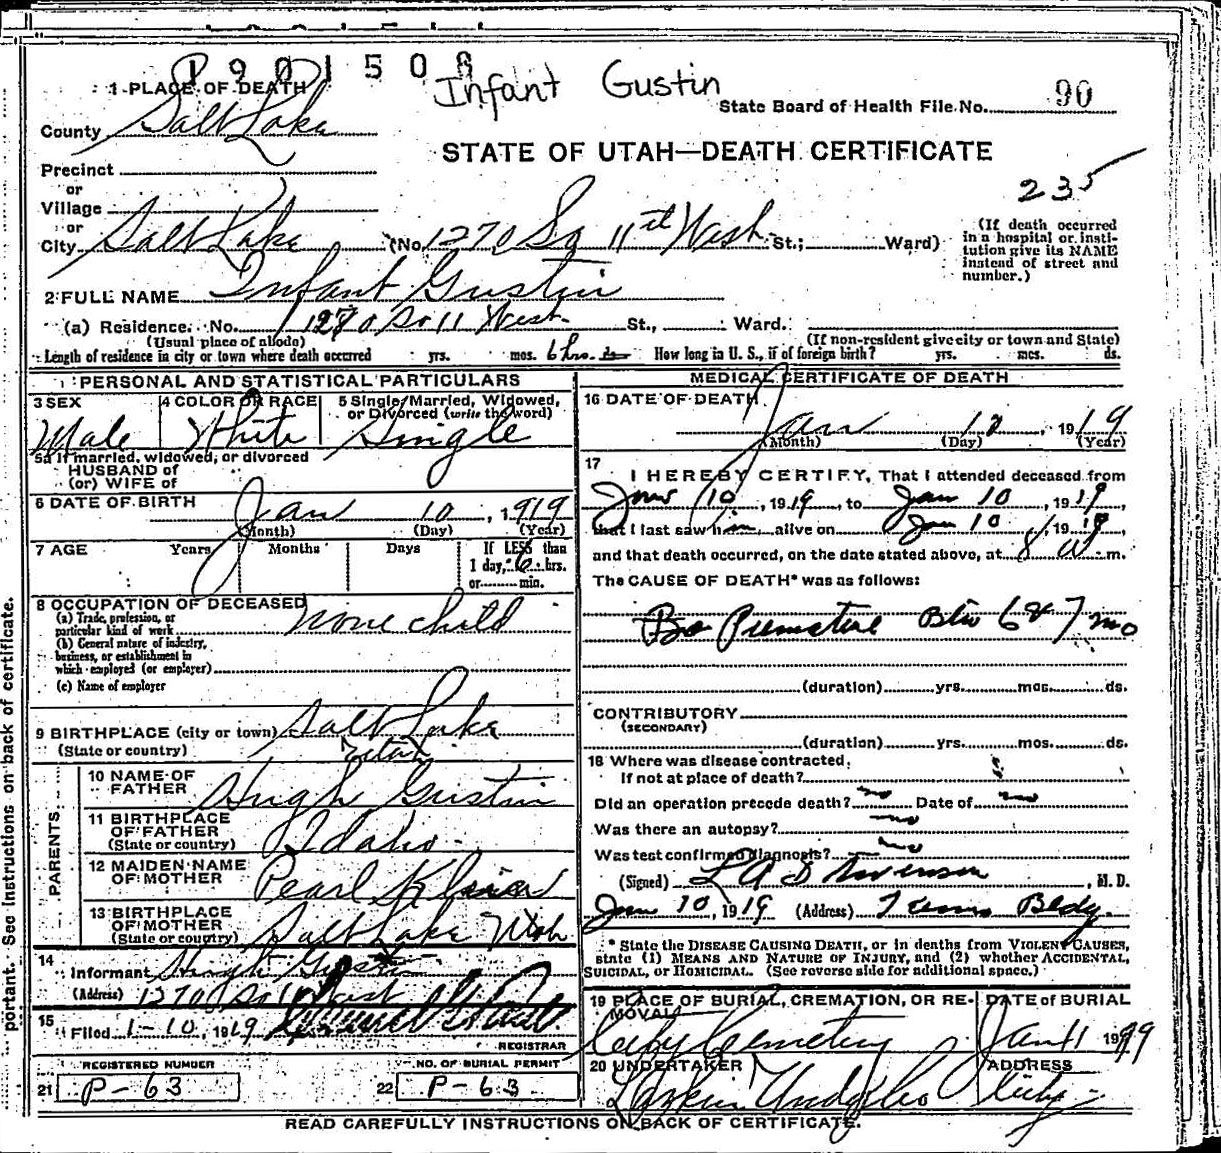 P 901508
Infant Gustin
1 PLACE OF DEATH
State Board of Health File No. 90
County Salt Lake
STATE OF UTAH—DEATH CERTIFICATE
Precinct
or
Village
235
or
City Salt Lake (No. 1270 So 11th West St.; Ward)
(If death occurred in a hospital or institution give its NAME instead of street and number.)
2 FULL NAME Infant Gustin
(a) Residence. No. 1270 So 11 West St., Ward.
(Usual place of abode) (If non-resident give city or town and State)
Length of residence in city or town where death occurred yrs. mos. 6 hrs. ds. How long in U. S., if of foreign birth? yrs. mos. ds.
PERSONAL AND STATISTICAL PARTICULARS
3 SEX 4 COLOR OR RACE 5 Single, Married, Widowed, or Divorced (write the word)
Male White Single
5a If married, widowed, or divorced
HUSBAND of
(or) WIFE of
6 DATE OF BIRTH
Jan 10, 1919
(Month) (Day) (Year)
7 AGE Years Months Days If LESS than
1 day, 6 hrs.
or min.
8 OCCUPATION OF DECEASED
(a) Trade, profession, or
particular kind of work none child
(b) General nature of industry,
business, or establishment in
which employed (or employer)
(c) Name of employer
9 BIRTHPLACE (city or town) Salt Lake
(State or country) Utah
PARENTS
10 NAME OF FATHER Hugh Gustin
11 BIRTHPLACE OF FATHER (State or country) Idaho
12 MAIDEN NAME OF MOTHER Pearl
13 BIRTHPLACE OF MOTHER (State or country) Salt Lake Utah
14
Informant Hugh Gustin
(Address) 1270 So 11 West
15
Filed 1-10, 1919
REGISTRAR
REGISTERED NUMBER NO. OF BURIAL PERMIT
21 P-63 22 P-63
MEDICAL CERTIFICATE OF DEATH
16 DATE OF DEATH
Jan 12, 1919
(Month) (Day) (Year)
17
I HEREBY CERTIFY, That I attended deceased from
Jan 10, 1919, to Jan 10, 1919,
that I last saw him alive on Jan 10, 1919,
and that death occurred, on the date stated above, at 8 a m.
The CAUSE OF DEATH* was as follows:
Premature 6 & 7 mo
(duration) yrs. mos. ds.
CONTRIBUTORY
(SECONDARY)
(duration) yrs. mos. ds.
18 Where was disease contracted,
If not at place of death?
Did an operation precede death? no Date of no
Was there an autopsy? no
Was test confirmed diagnosis? no
(Signed) L A Stevenson, M. D.
Jan 10, 1919 (Address) Bldg.
* State the DISEASE CAUSING DEATH, or in deaths from VIOLENT CAUSES,
state (1) MEANS AND NATURE OF INJURY, and (2) whether ACCIDENTAL,
SUICIDAL, or HOMICIDAL. (See reverse side for additional space.)
19 PLACE OF BURIAL, CREMATION, OR REMOVAL DATE of BURIAL
City Cemetery Jan 11 1919
20 UNDERTAKER ADDRESS
Larkin Und City
READ CAREFULLY INSTRUCTIONS ON BACK OF CERTIFICATE.
portant. See instructions on back of certificate.